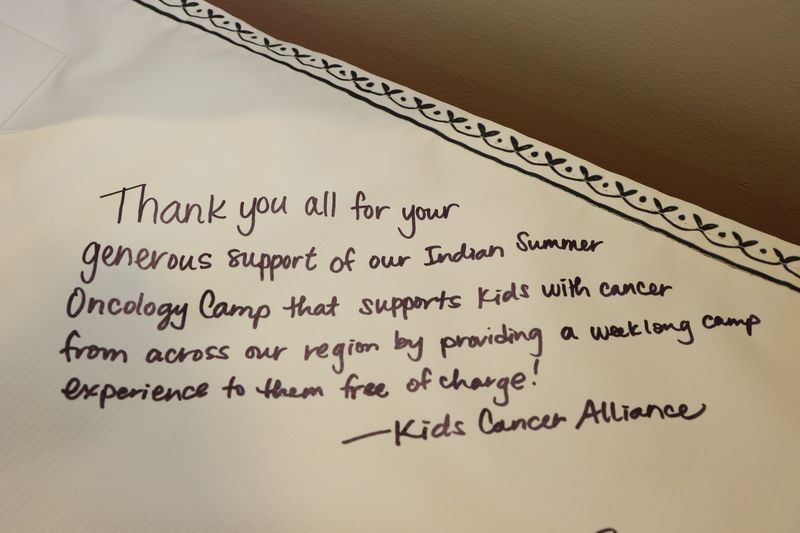 Thank you all for your
generous support of our Indian Summer
Oncology Camp that supports kids with cancer
from across our region by providing a weeklong camp
experience to them free of charge!
—Kids Cancer Alliance